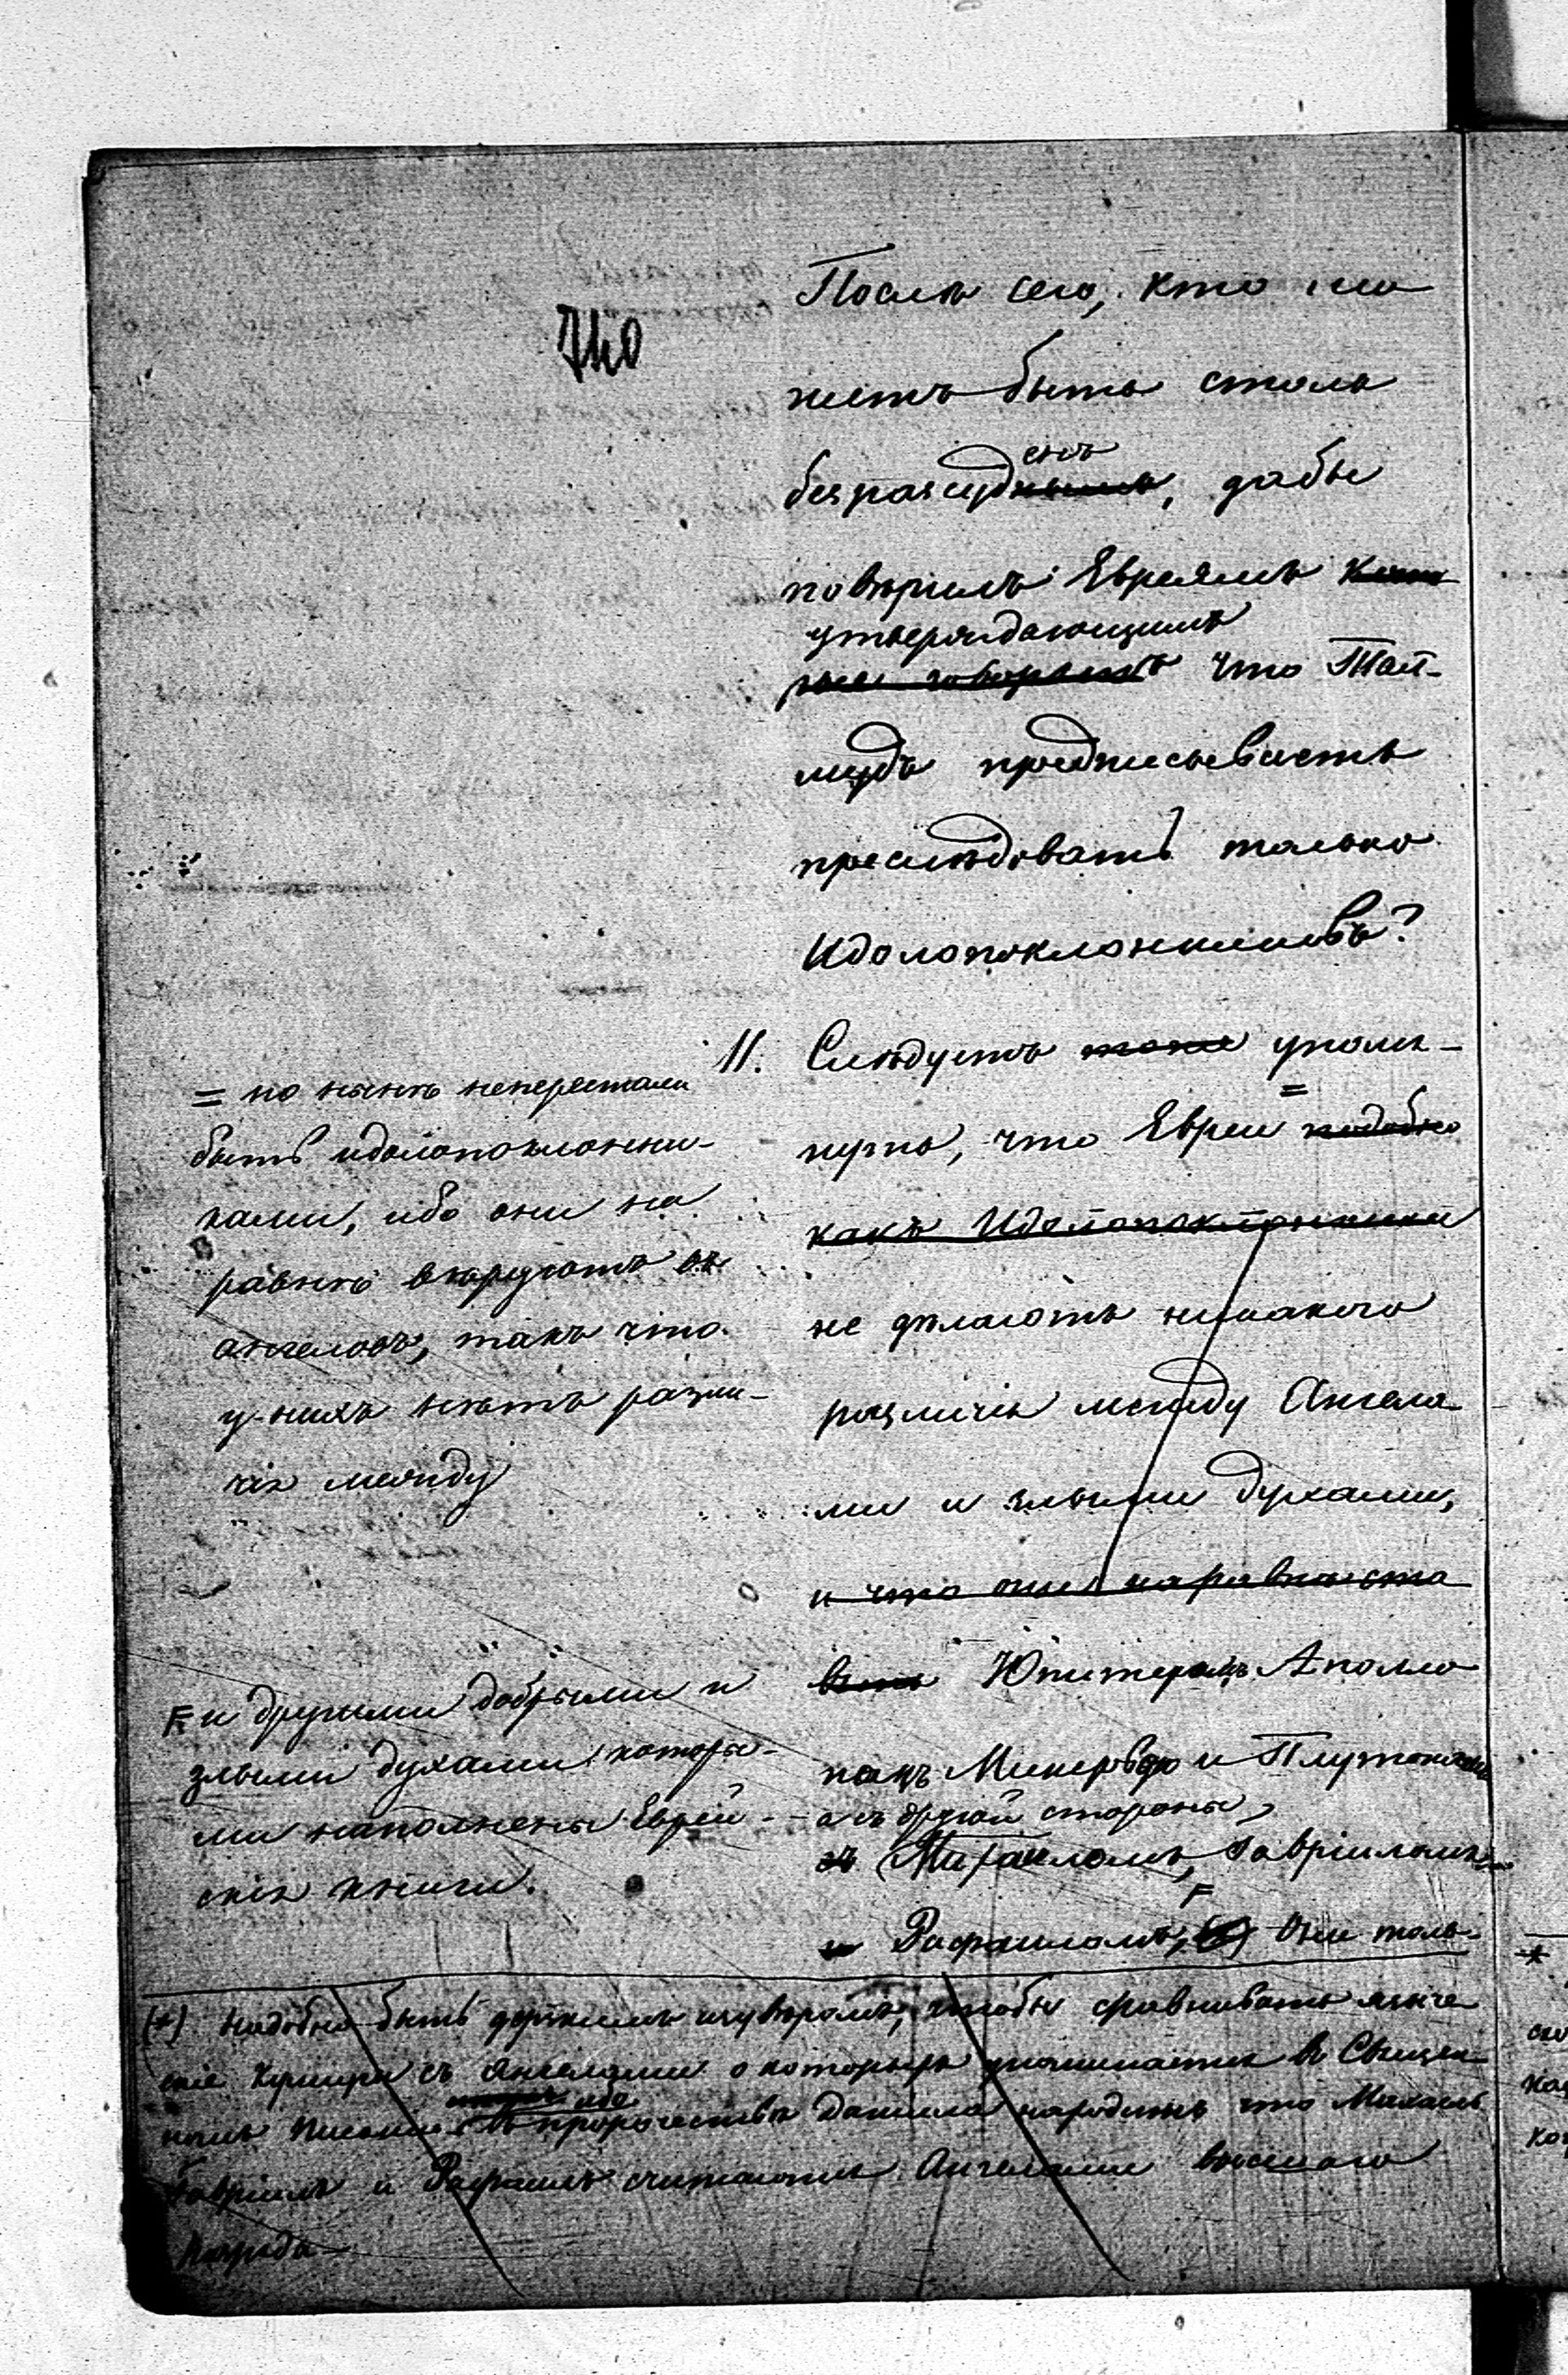 740
Послѣ сего, кто мо
жетъ быть столь
енъ
безразсуднымъ, дабы
повѣрилъ Евреямъ кото
утверждающимъ
рые говорятъ что Тал-
мудъ предписываетъ
преслѣдовать только
Идолопоклонниковъ?
11. Слѣдуетъ тоже упомя-
нуть, что Евреи = подобно
какъ Идолопоклонники
не дѣлаютъ никакого
различія между Ангела
ми и злыми духами,
и что они наравнѣ ста
вятъ Юпитеромъ Аполло
номъ Минервою и Плутономъ
а съ другой стороны,
съ Михаиломъ, Гавріиломъ
и Рафаиломъ, F (*) Они толь-
= по нынѣ неперестали
быть идолопоклонни-
ками, ибо они на
равнѣ вѣруютъ въ
ангеловъ, такъ что
у нихъ нѣтъ разли-
чія между
F и другими добрыми и
злыми духами, которы-
ми наполнены Еврей-
скія книги.
(*) Надобно быть дерзкимъ изувѣромъ, чтобы сравнивать языче
скіе кумиры съ Ангелами о которыхъ упоминается въ Священ
ибо
номъ Писаніи. Въ пророчествѣ Даніила находимъ что Михаилъ
Гавріилъ и Рафаилъ считаются Ангелами высшаго
Разряда